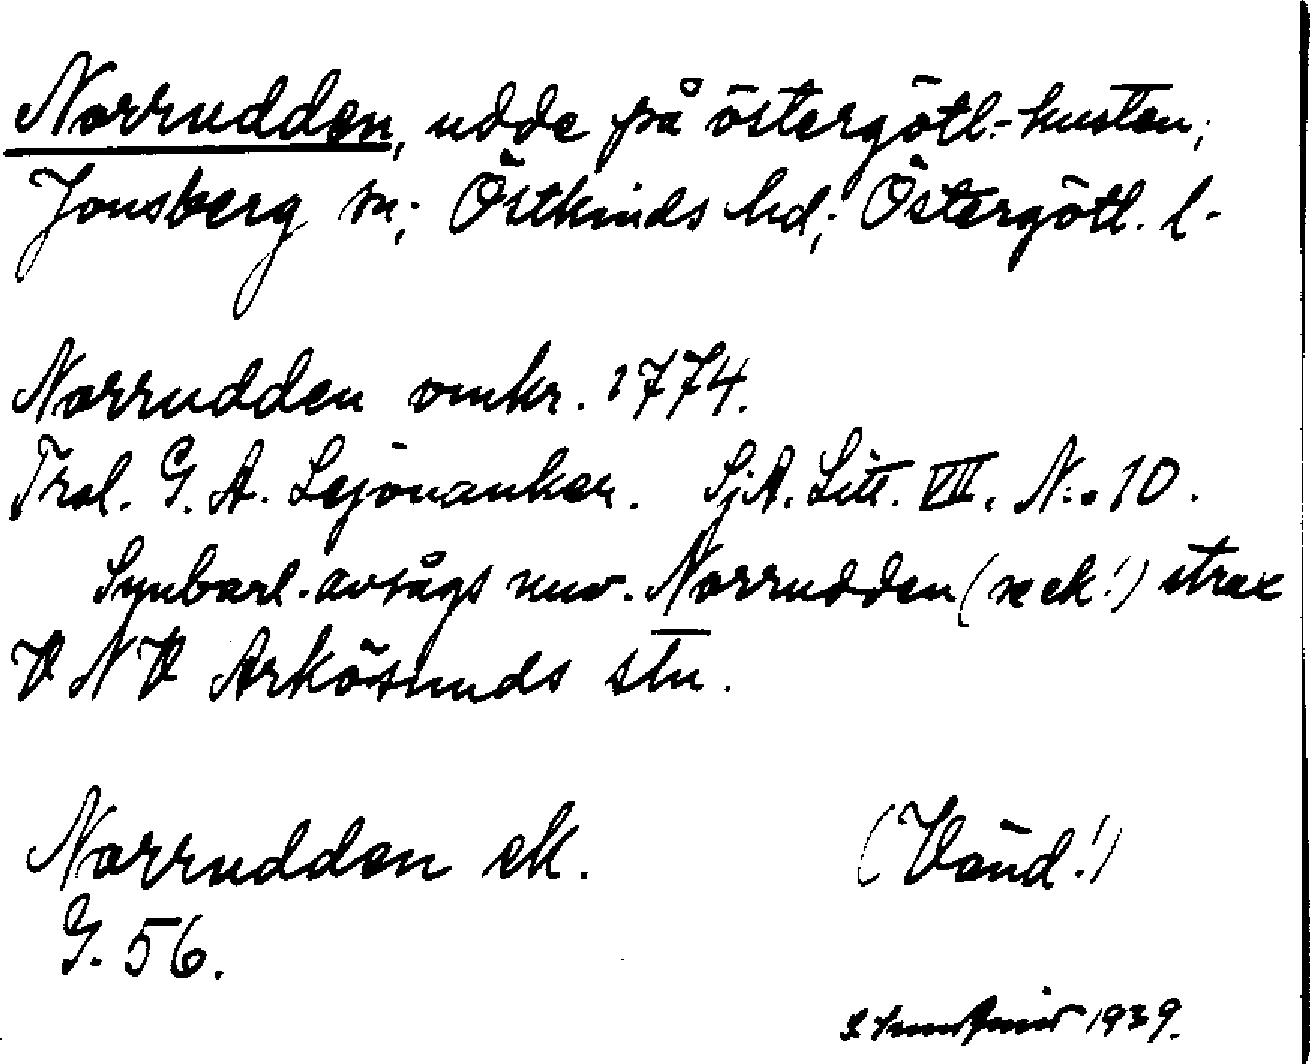 Norrudden, udde på östergötl.-kusten;
Jonsberg sn; Östkinds hd; Östergötl. l.
Norrudden omkr. 1774.
G. A. Lejonanker. SjA. Litt. VII. N:o 10.
Synbarl. avsågs nuv. Norrudden (se ek!) strax
V N V Arkösunds stn.
Norrudden ek. (Vänd!)
G. 56.
1939.